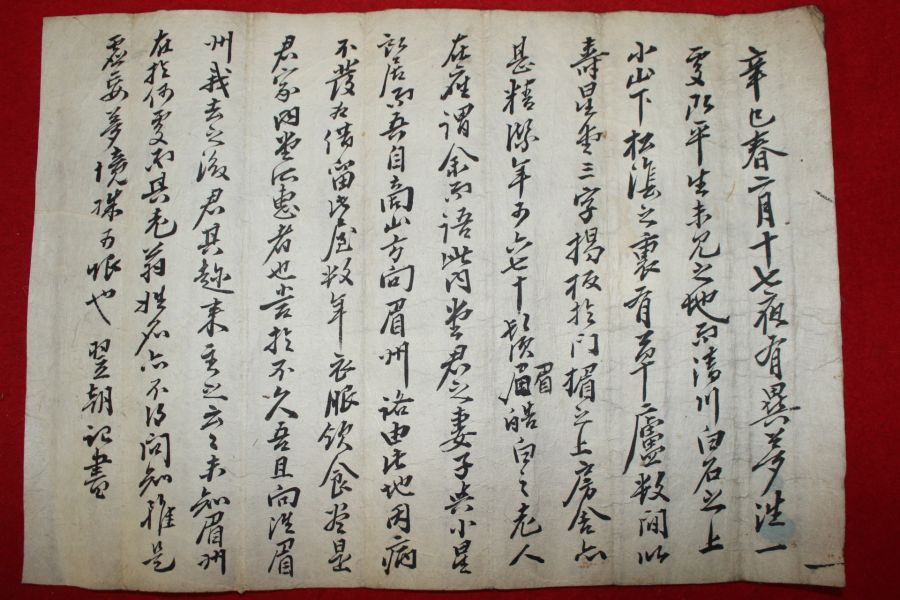 辛巳春二月十七夜有異夢法一
處即平生未見之地而淸川白石之上
小山下松篁之裏有草廬數間以
壽星堂三字揭板於門楣之上房舍亦
甚精潔年可六七十鬚眉皓白之老人
在座謂余而語此內堂君之妻子與小星
所居而吾自商山方向眉州路由此地因病
不發方借留此屋數年衣服飮食皆是
君家內堂所惠者也苦於不久吾且向眉
州我去之後君其趂来主之云云未知眉州
在於何處而其老翁姓名亦不得問知雖是
虛妄夢境殊可恨也 翌朝記書